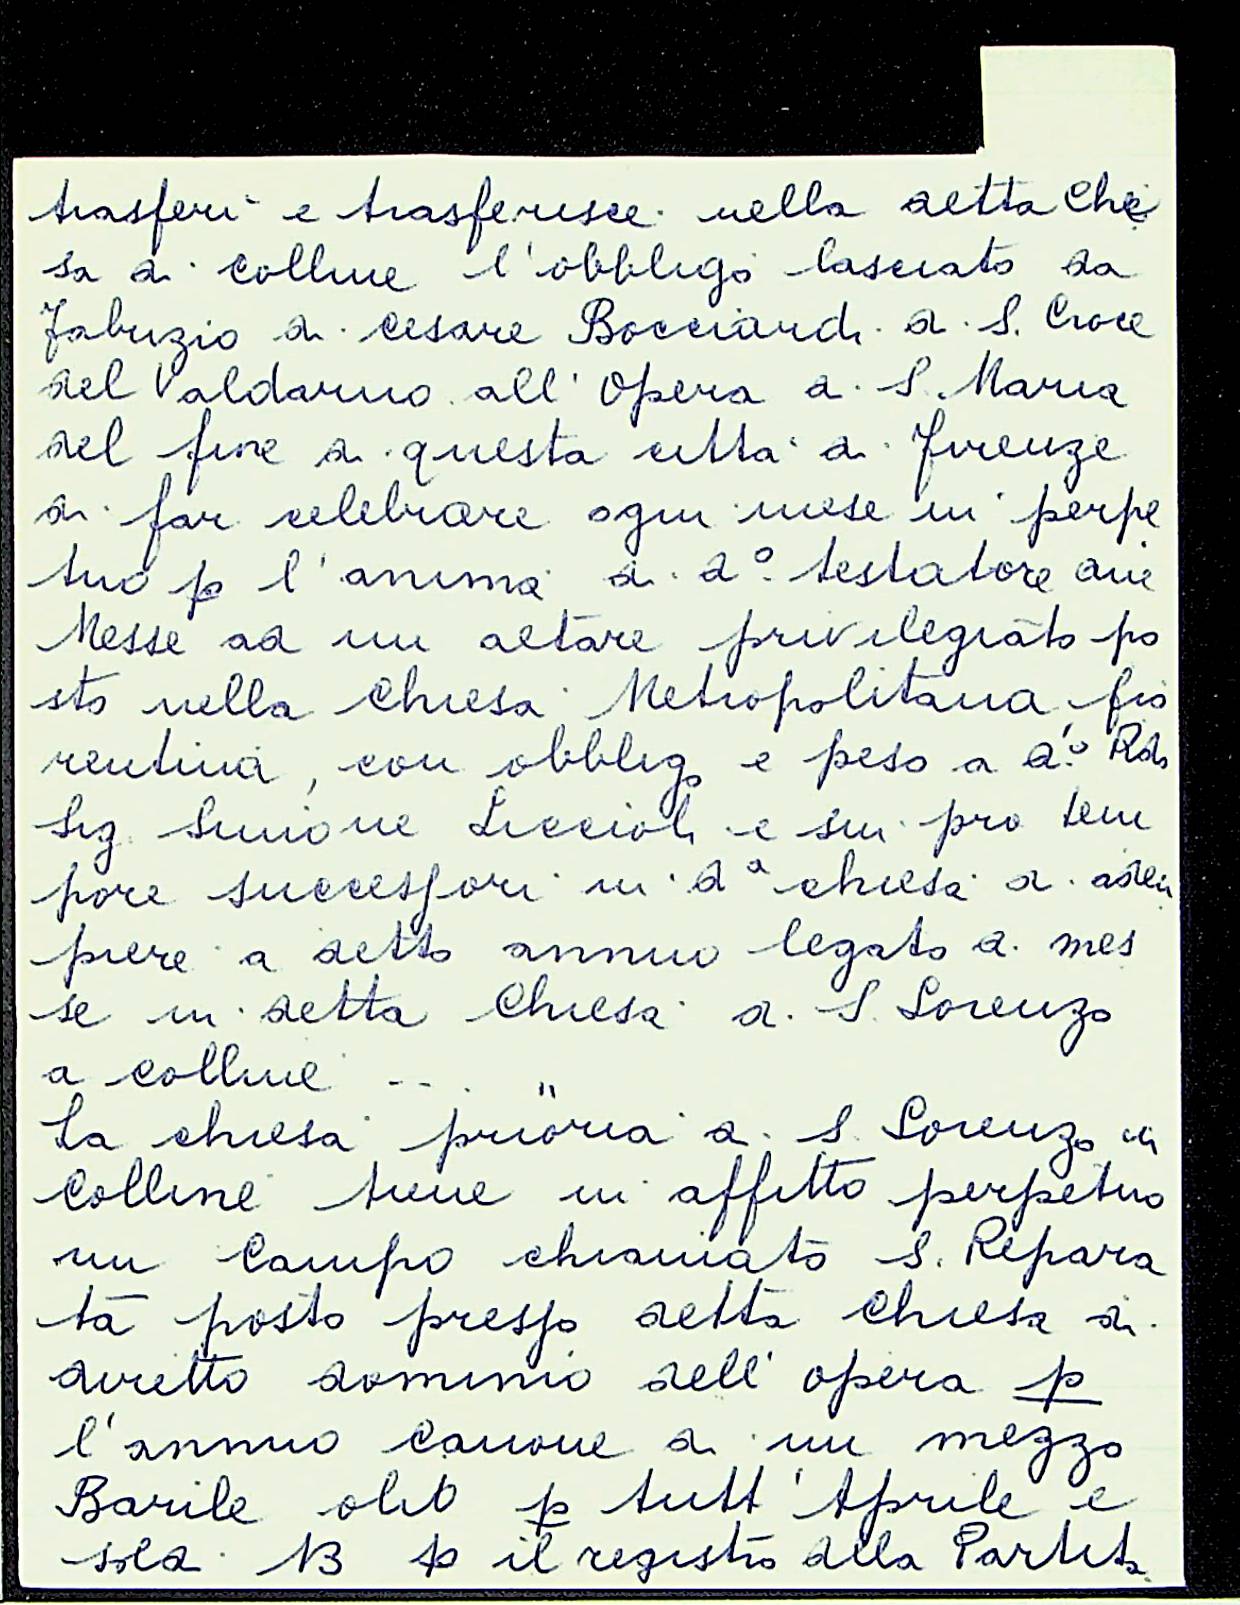 trasferì e trasferisce nella detta Chie
sa di Colline l'obbligo lasciato da
Fabrizio di Cesare Bocciardi di S. Croce
del Valdarno all'Opera di S. Maria
del fiore di questa città di Firenze
di far celebrare ogni mese in perpe
tuo p l'anima di d.º testatore due
Messe ad un altare privilegiato po
sto nella Chiesa Metropolitana fio
rentina, con obbligo e peso a d.º Rdo
Sig. Simone Liccioli e suoi pro tem
pore successori in d.ª chiesa di adem
piere a detto annuo legato di mes
se in detta Chiesa di S. Lorenzo
a Colline .... "
La chiesa prioria di S. Lorenzo in
Colline tiene in affitto perpetuo
un Campo chiamato S. Repara
ta posto presso detta Chiesa di
diretto dominio dell'opera p
l'annuo canone di un mezzo
Barile olio p tutt'Aprile e
soldi 13 p il registro della Partita